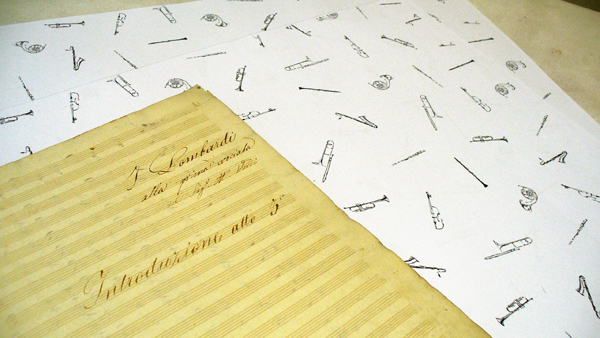 I Lombardi
alla prima crociata
Introduzione atto 3°